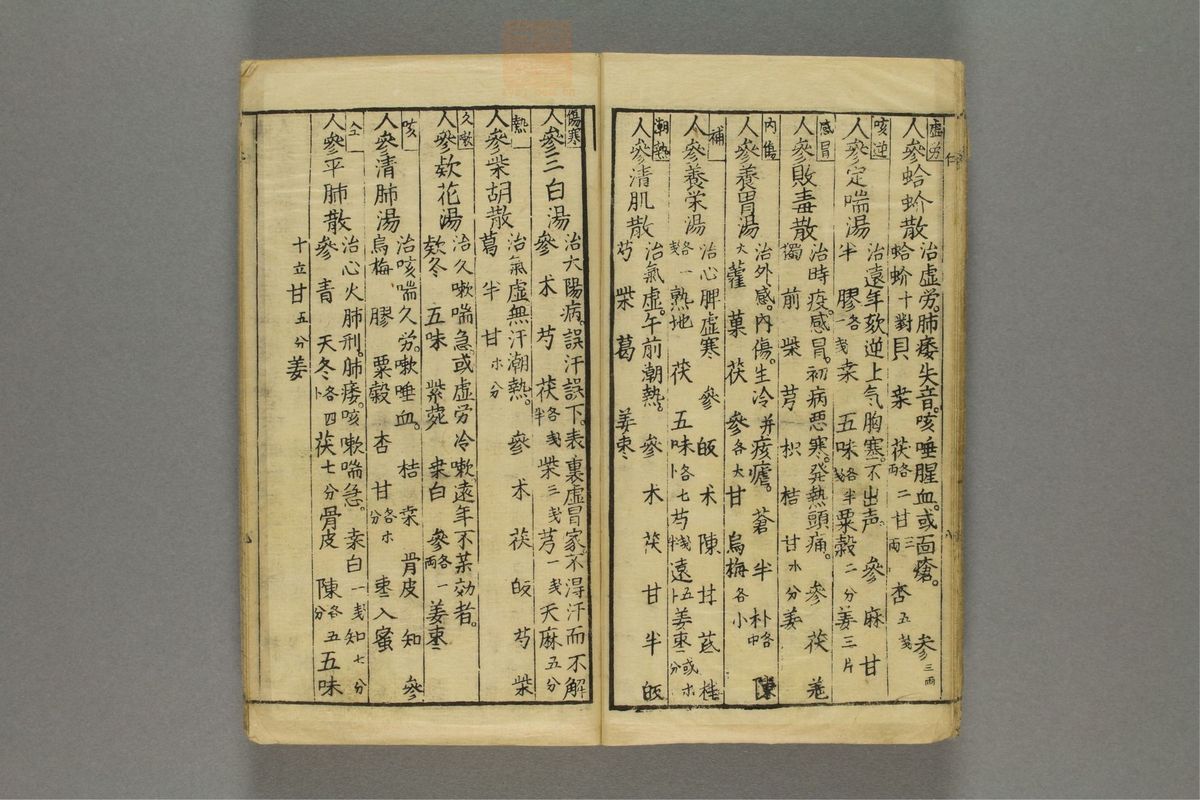 虚労
人參蛤蚧散
治虚労。肺痿失音。咳唾腥血。或面瘡。參三両
蛤蚧十對貝 桒 茯各二両甘三両 杏五戔
咳逆
人參定喘湯
治遠年欬逆上气胸塞。不出声。參 麻 甘
半 膠各一戔桒 五味各半戔粟穀二分姜三片
感冒
人參敗毒散
治時疫。感冒。初病悪寒。発熱頭痛。參 茯 羌
獨 前 柴 芎 枳 桔 甘水分姜
内傷
人參養胃湯
治外感。内傷。生冷并痎瘧。蒼 半 朴各中 陳
大藿 菓 茯 參各大甘 烏梅各小
補
人參養栄湯
治心脾虚寒 參 皈 朮 陳 甘 芪 桂
各一戔熟地 茯 五味各七卜芍戔半遠五卜姜棗或水分
潮熱
人參清肌散
治氣虚。午前潮熱。參 朮 茯 甘 半 皈
芍 柴 葛 姜棗
傷寒
人參三白湯
治大陽病。誤汗誤下。表裏虚冒家。不得汗而不解
參 朮 芍 茯各戔半柴三戔芎一戔天麻五分
熱
人參柴胡散
治氣虚無汗潮熱。參 朮 茯 皈 芍 柴
葛 半 甘水分
久嗽
人參欵花湯
治久嗽喘急或虚労冷嗽遠年不薬効者。
欵冬 五味 紫菀 桒白 參各一両姜棗
咳
人參清肺湯
治咳喘久労。嗽唾血。桔 桒 骨皮 知 參
烏梅 膠 粟穀 杏 甘各水分 棗入蜜
仝
人參平肺散
治心火肺刑。肺痿。咳嗽喘急。桒白一戔知七分
參 青 天冬各四卜茯七分骨皮 陳各五分五味
十立甘五分姜